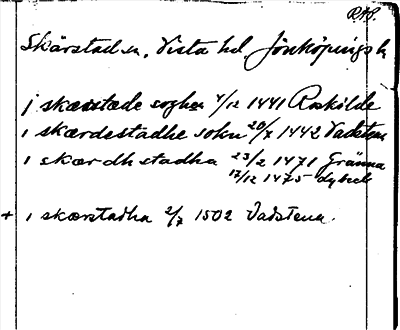 RAP.
Skärstad sn, Vista hd, Jönköpings l.
j skærstæde soghen 4/12 1441 Roskilde
i skærdestadhe sokn 20/7 1442 Vadstena
i skærdhstadha 23/2 1471 Gränna
17/12 1475 dybeck
+ i skærstadha 2/7 1502 Vadstena.